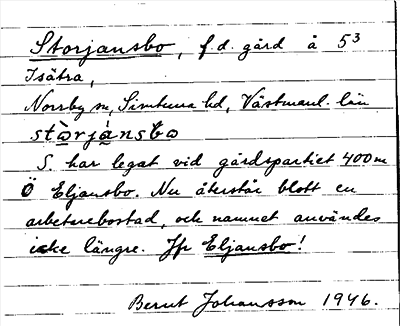 Storjansbo, f.d. gård å 5³
Isätra,
Norrby sn, Simtuna hd, Västmanl. län
stɷ̀rjánsbɷ
S. har legat vid gårdspartiet 400 m
Ö Eljansbo. Nu återstår blott en
arbetarebostad, och namnet användes
icke längre. Jfr Eljansbo!
Bernt Johansson 1946.